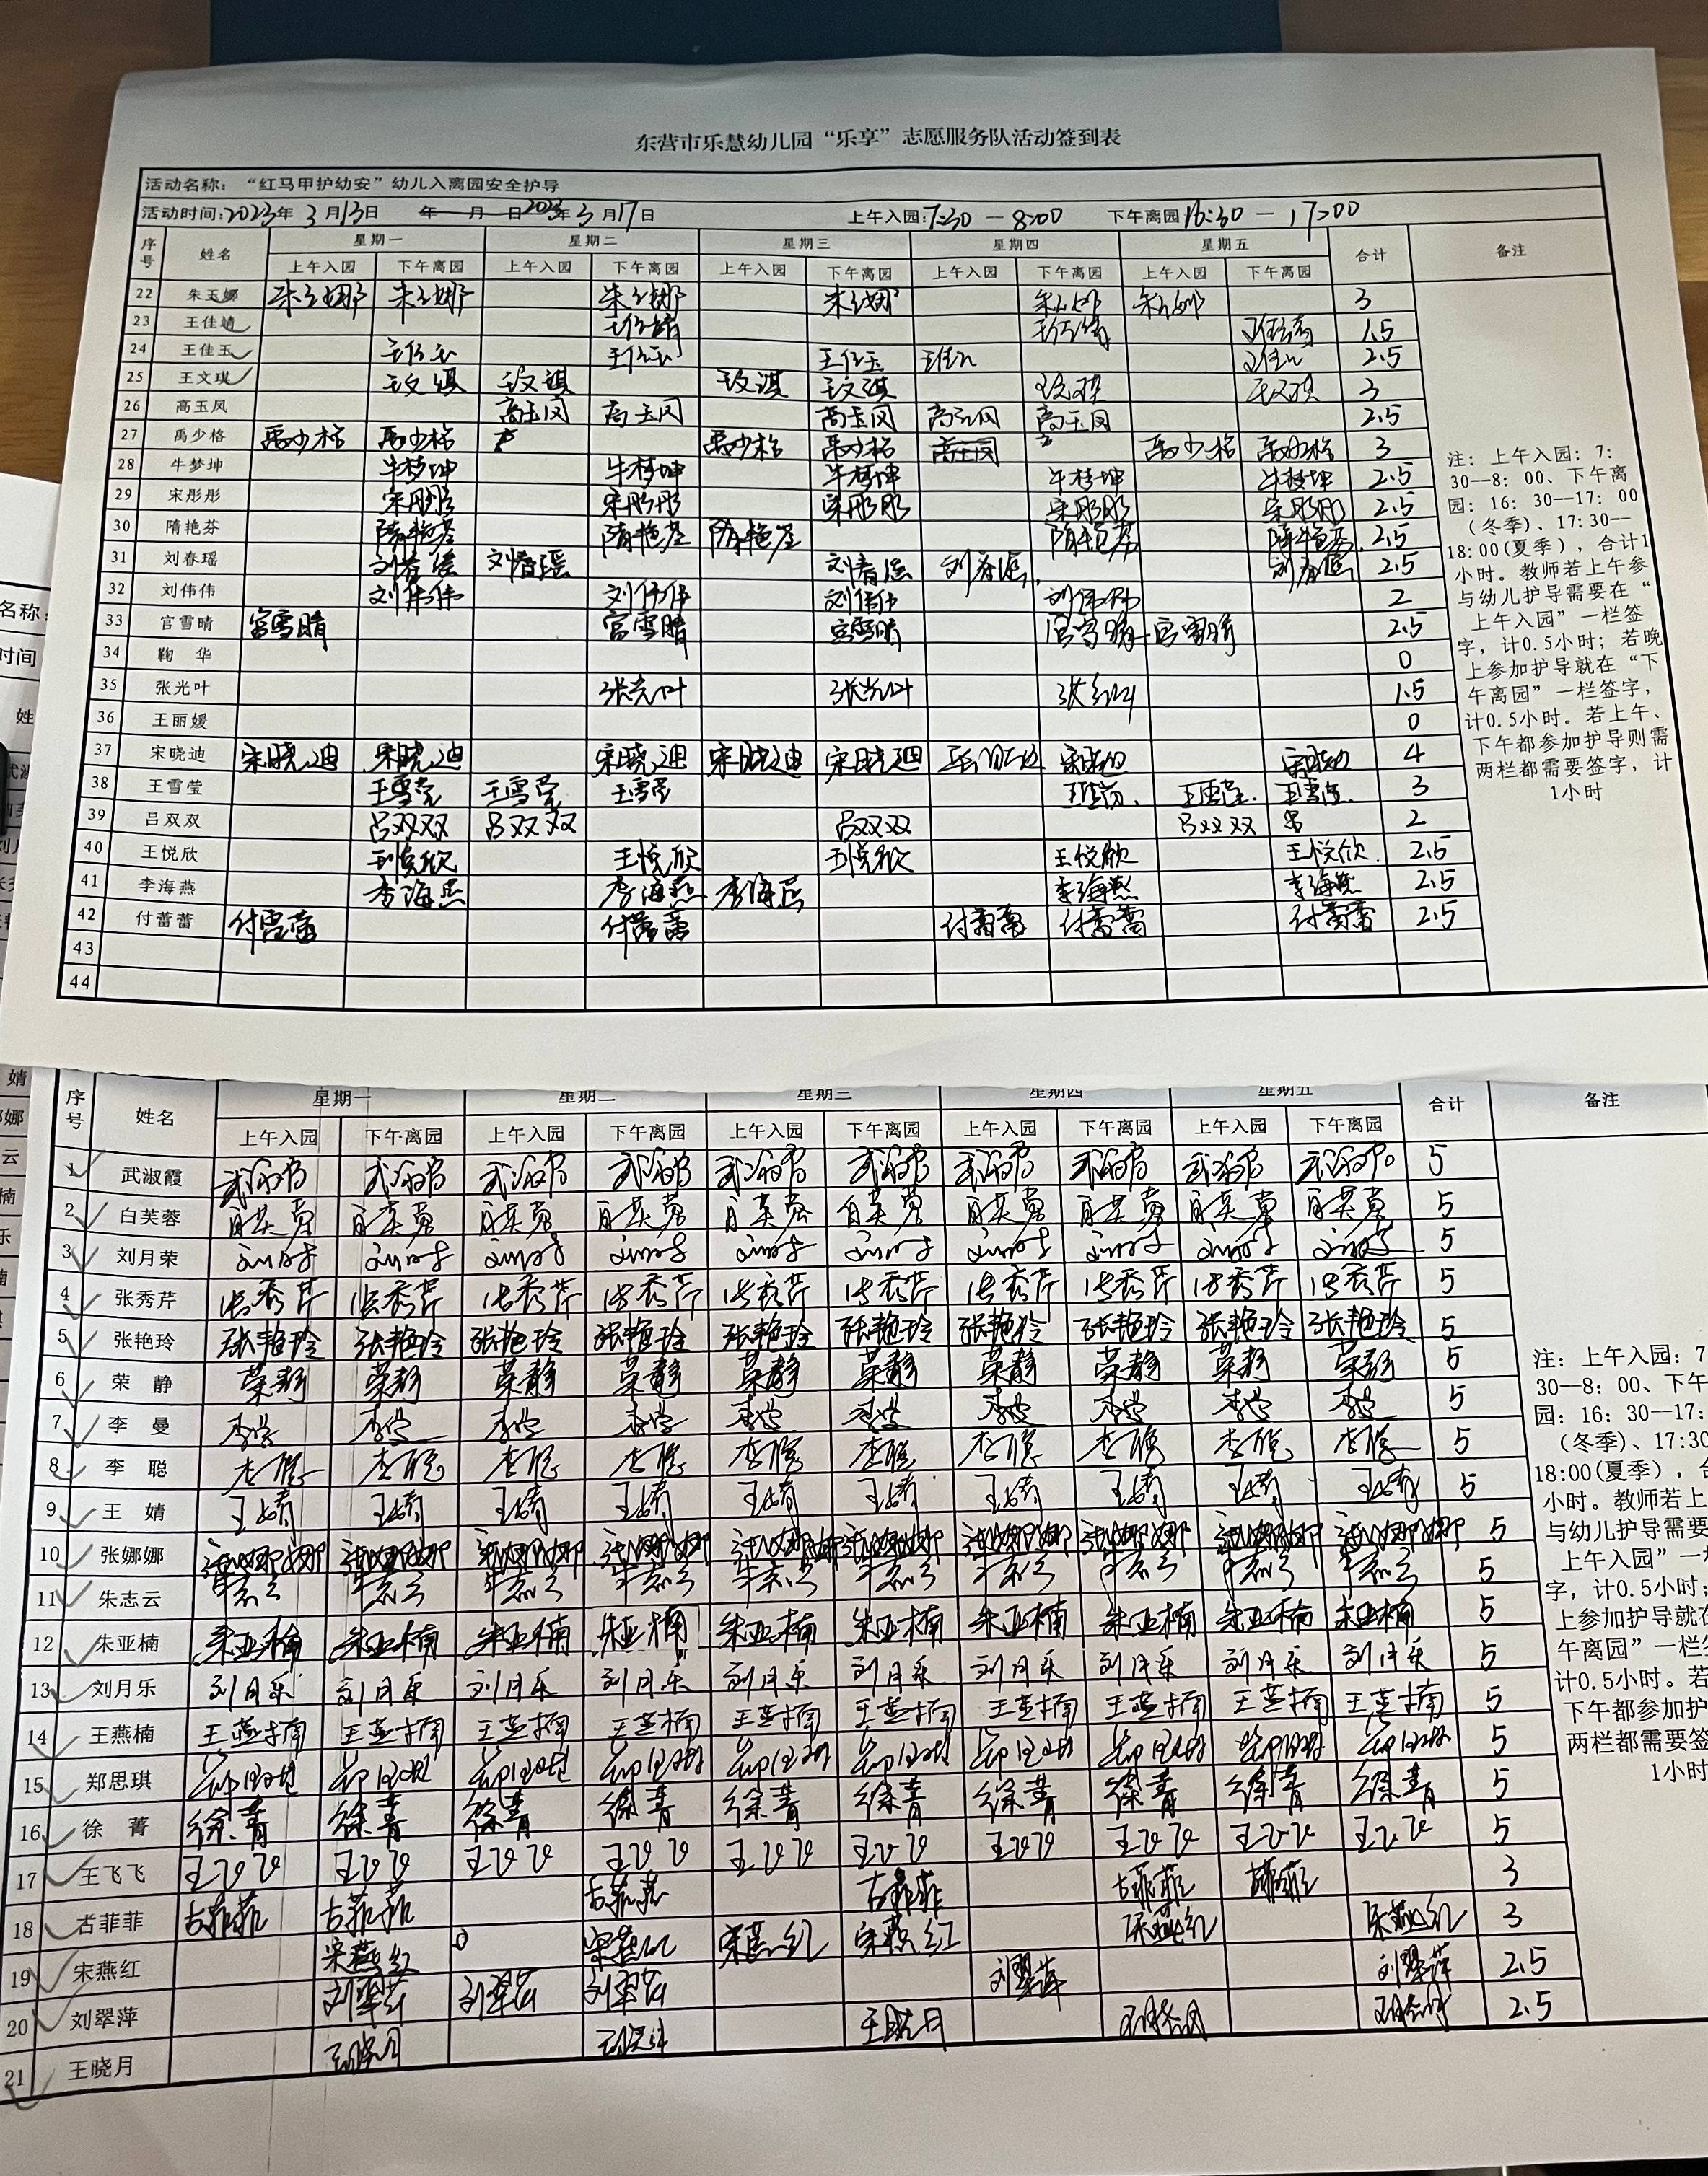 东营市乐慧幼儿园“乐享”志愿服务队活动签到表
活动名称：“红马甲护幼安”幼儿入离园安全护导
活动时间:2023年 3月13日 年 月 日2023年3月17日 上午入园:7:30 — 8:00 下午离园16:30 — 17:00
序号 姓名 星期一 星期二 星期三 星期四 星期五 合计 备注
上午入园 下午离园 上午入园 下午离园 上午入园 下午离园 上午入园 下午离园 上午入园 下午离园
22 朱玉娜 朱玉娜 朱玉娜 朱玉娜 朱玉娜 朱玉娜 朱玉娜 3
23 王佳靖 王佳靖 王佳靖 王佳靖 1.5
24 王佳玉 王佳玉 王佳玉 王佳玉 王佳玉 王佳玉 2.5
25 王文琪 王文琪 王文琪 王文琪 王文琪 王文琪 王文琪 3
26 高玉凤 高玉凤 高玉凤 高玉凤 高玉凤 高玉凤 2.5
27 禹少格 禹少格 禹少格 禹少格 禹少格 高玉凤 禹少格 禹少格 3
28 牛梦坤 牛梦坤 牛梦坤 牛梦坤 牛梦坤 牛梦坤 2.5
29 宋彤彤 宋彤彤 宋彤彤 宋彤彤 宋彤彤 宋彤彤 2.5
30 隋艳芬 隋艳芬 隋艳芬 隋艳芬 隋艳芬 隋艳芬 2.5
31 刘春瑶 刘春瑶 刘春瑶 刘春瑶 刘春瑶 刘春瑶 2.5
32 刘伟伟 刘伟伟 刘伟伟 刘伟伟 刘伟伟 2
33 宫雪晴 宫雪晴 宫雪晴 宫雪晴 宫雪晴 宫雪晴 2.5
34 鞠 华 0
35 张光叶 张光叶 张光叶 张光叶 1.5
36 王丽媛 0
37 宋晓迪 宋晓迪 宋晓迪 宋晓迪 宋晓迪 宋晓迪 宋晓迪 宋晓迪 宋晓迪 4
38 王雪莹 王雪莹 王雪莹 王雪莹 王雪莹 王雪莹 王雪莹 3
39 吕双双 吕双双 吕双双 吕双双 吕双双 吕 2
40 王悦欣 王悦欣 王悦欣 王悦欣 王悦欣 王悦欣 2.5
41 李海燕 李海燕 李海燕 李海燕 李海燕 李海燕 2.5
42 付蕾蕾 付蕾蕾 付蕾蕾 付蕾蕾 付蕾蕾 付蕾蕾 2.5
43
44
注：上午入园：7：
30--8：00、下午离
园：16：30--17：00
（冬季）、17:30--
18:00(夏季），合计1
小时。教师若上午参
与幼儿护导需要在“
上午入园”一栏签
字，计0.5小时；若晚
上参加护导就在“下
午离园”一栏签字，
计0.5小时。若上午、
下午都参加护导则需
两栏都需要签字，计
1小时
名称：
时间
姓
婧
娜
云
楠
乐
序号 姓名 星期一 星期二 星期三 星期四 星期五 合计 备注
上午入园 下午离园 上午入园 下午离园 上午入园 下午离园 上午入园 下午离园 上午入园 下午离园
1 武淑霞 武淑霞 武淑霞 武淑霞 武淑霞 武淑霞 武淑霞 武淑霞 武淑霞 武淑霞 武淑霞 5
2 白芙蓉 白芙蓉 白芙蓉 白芙蓉 白芙蓉 白芙蓉 白芙蓉 白芙蓉 白芙蓉 白芙蓉 白芙蓉 5
3 刘月荣 刘月荣 刘月荣 刘月荣 刘月荣 刘月荣 刘月荣 刘月荣 刘月荣 刘月荣 刘月荣 5
4 张秀芹 张秀芹 张秀芹 张秀芹 张秀芹 张秀芹 张秀芹 张秀芹 张秀芹 张秀芹 张秀芹 5
5 张艳玲 张艳玲 张艳玲 张艳玲 张艳玲 张艳玲 张艳玲 张艳玲 张艳玲 张艳玲 张艳玲 5
6 荣 静 荣静 荣静 荣静 荣静 荣静 荣静 荣静 荣静 荣静 荣静 5
7 李 曼 李曼 李曼 李曼 李曼 李曼 李曼 李曼 李曼 李曼 李曼 5
8 李 聪 李聪 李聪 李聪 李聪 李聪 李聪 李聪 李聪 李聪 李聪 5
9 王 婧 王婧 王婧 王婧 王婧 王婧 王婧 王婧 王婧 王婧 王婧 5
10 张娜娜 张娜娜 张娜娜 张娜娜 张娜娜 张娜娜 张娜娜 张娜娜 张娜娜 张娜娜 张娜娜 5
11 朱志云 朱志云 朱志云 朱志云 朱志云 朱志云 朱志云 朱志云 朱志云 朱志云 朱志云 5
12 朱亚楠 朱亚楠 朱亚楠 朱亚楠 朱亚楠 朱亚楠 朱亚楠 朱亚楠 朱亚楠 朱亚楠 朱亚楠 5
13 刘月乐 刘月乐 刘月乐 刘月乐 刘月乐 刘月乐 刘月乐 刘月乐 刘月乐 刘月乐 刘月乐 5
14 王燕楠 王燕楠 王燕楠 王燕楠 王燕楠 王燕楠 王燕楠 王燕楠 王燕楠 王燕楠 王燕楠 5
15 郑思琪 郑思琪 郑思琪 郑思琪 郑思琪 郑思琪 郑思琪 郑思琪 郑思琪 郑思琪 郑思琪 5
16 徐 菁 徐菁 徐菁 徐菁 徐菁 徐菁 徐菁 徐菁 徐菁 徐菁 徐菁 5
17 王飞飞 王飞飞 王飞飞 王飞飞 王飞飞 王飞飞 王飞飞 王飞飞 王飞飞 王飞飞 王飞飞 5
18 古菲菲 古菲菲 古菲菲 古菲菲 古菲菲 古菲菲 古菲菲 3
19 宋燕红 宋燕红 宋燕红 宋燕红 宋燕红 宋燕红 宋燕红 3
20 刘翠萍 刘翠萍 刘翠萍 刘翠萍 刘翠萍 刘翠萍 2.5
21 王晓月 王晓月 王晓月 王晓月 王晓月 王晓月 2.5
注：上午入园：7
30--8：00、下午
园：16：30--17：
（冬季）、17:30
18:00(夏季），合
小时。教师若上
与幼儿护导需要
上午入园”一栏
字，计0.5小时；
上参加护导就在
午离园”一栏签
计0.5小时。若
下午都参加护
两栏都需要签
1小时